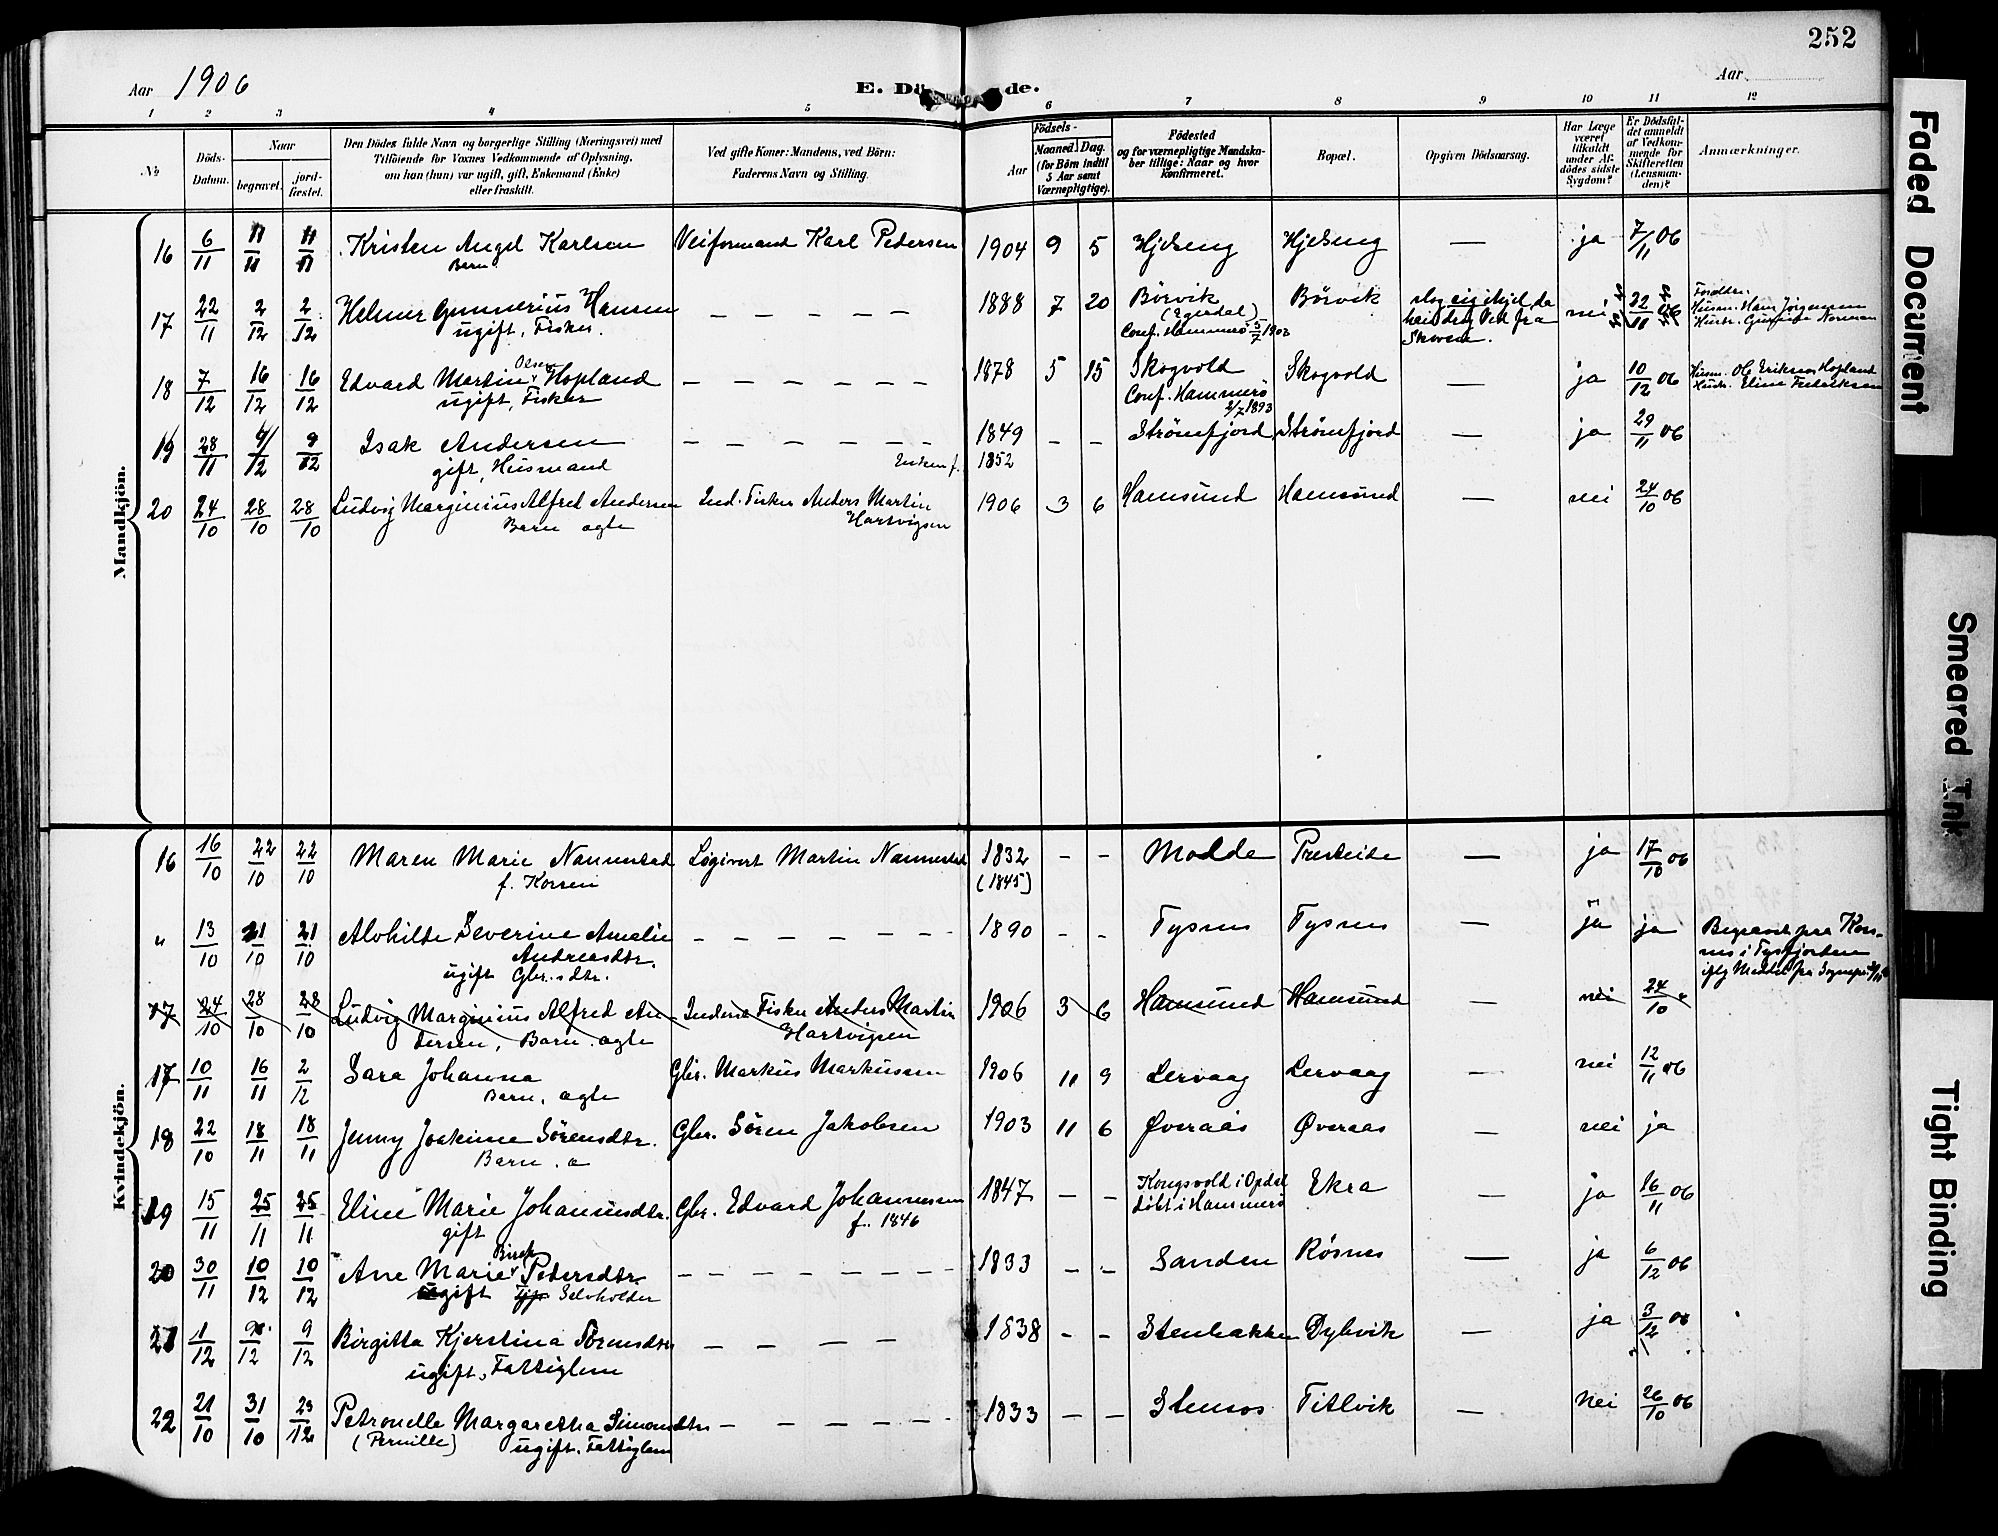 252
Aar 1906
E. Dö de.
Aar
1 2 3 4 5 6 7 8 9 10 11 12
No
Döds-
Datum.
Naar
begravet.
jord-
fæstet.
Den Dödes fulde Navn og borgerlige Stilling (Næringsvei) med
Tilföiende for Voxnes Vedkommende af Oplysning,
om han (hun) var ugift, gift, Enkemand (Enke)
eller fraskilt.
Ved gifte Koner: Mandens, ved Börn:
Faderens Navn og Stilling.
Födsels-
Aar
Maaned. Dag.
(for Börn indtil
5 Aar samt
Værnepligtige).
Födested
og for værnepligtige Mandska-
ber tillige: Naar og hvor
konfirmeret.
Bopæl.
Opgiven Dödsaarsag.
Har Læge
været
tilkaldt
under Af-
dödes sidste
Sygdom?
Er Dödsfal-
det anmeldt
af Vedkom-
mende for
Skifteretten
(Lensman-
den)?
Anmærkninger.
Mandkjön.
16 6/11 11/11 11/11 Kristen Angel Karlsen Veiformand Karl Pedersen 1904 9 5 Hjelseng Hjelseng — ja 7/11 06
Barn
17 22/11 2/12 2/12 Helmer Gunnerius Hansen — — — — — 1888 7 20 Börvik Börvik slog sig ihjel, da nei 22/11 06 Foreldre:
ugift, Fisker. (Egerdal) han drog Ved fra Husm. Hans Jörgensen
Conf. Hammerö 5/7 1903 Skoven.
Olsen
18 7/12 16/12 16/12 Edvard Martin Hopland — — — — — 1878 5 15 Skogvold Skogvold — ja 10/12 06 Husm. Ole Eriksen Hopland
ugift, Fisker Conf. Hammerö Hustr. Eline Fredriksen
2/7 1893
19 28/11 9/12 9/12 Isak Andersen — — — — — — 1849 — — Strömfjord Strömfjord — ja 29/11 06
gift, Husmand 1852
20 24/10 28/10 28/10 Ludvig Marginius Alfred Andersen Ind. Fisker Anders Martin 1906 3 6 Hamsund Hamsund — nei 24/10 06
Barn ægte Hartvigsen
Kvindekjön.
16 16/10 22/10 22/10 Maren Marie Nannestad Logivert Martin Nannestad 1832 — — Molde Presteide — ja 17/10 06
(1845)
" 13/10 21/10 21/10 Alvhilde Severine Amalie — — — — — — 1890 — — Tysnes Tysnes — ja ja Begravet paa Kors-
Andreasdtr. nes i Tysfjorden
ugift Gbr.sdtr.
17 24/10 28/10 28/10 Ludvig Marginius Alfred An- Inderst Fisker Anders Martin 1906 3 6 Hamsund Hamsund — nei 24/10
dersen, Barn ægte Hartvigsen
17 10/11 16/11 2/12 Sara Johanna Gbr. Markus Markussen 1906 11 9 Lervaag Lervaag — nei 12/11 06
Barn, ægte
18 22/10 18/11 18/11 Jenny Joakime Sörensdtr. Gbr. Sören Jakobsen 1903 11 6 Øveraas Øveraas — nei ja
Barn. æ
19 15/11 25/11 25/11 Eline Marie Johannesdtr. Gbr. Edvard Johannessen 1847 — — Kongsvold i Opdal Ekra — ja 16/11 06
gift f. 1846 döbt i Hammerö
Birch
20 30/11 10/12 10/12 Ane Marie Petersdtr — — — — — — — 1833 — — Sanden Rösnes — ja 6/12 06
ugift Selvholder
21 1/12 9/12 9/12 Birgitta Kjerstina Sörensdtr — — — — 1838 — — Stenbakken Dybvik — ja 3/12 06
ugift, Fattiglem
22 21/10 31/10 23/12 Petronelle Margaretha Simonsdtr — — — — — — 1833 — — Stensos Titlvik — nei 26/10 06
(Pernille) ugift. Fattiglem
Faded Document
Smeared Ink
Tight Binding